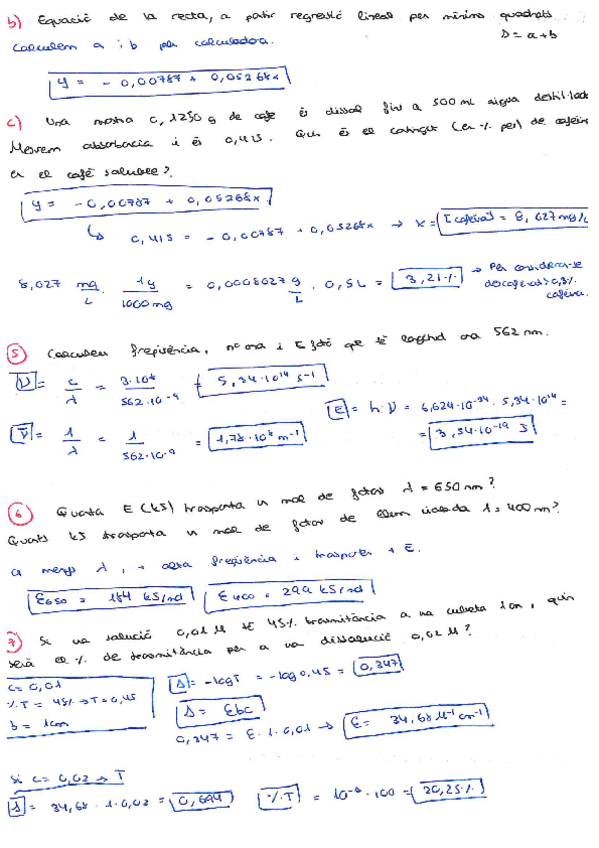 b) Equació de la recta, a partir regressió lineal per mínims quadrats
Calculem a i b per calculadora. A = a+b
y = - 0,00787 + 0,05268x
c) Una mostra 0,1250 g de cafe és dissol fins a 500 mL aigua destil·lada
Mesurem absorbancia i és 0,415. Quin és el contingut (en % pes) de cafeina
en el cafè soluble?
y = - 0,00787 + 0,05268x
↳ 0,415 = - 0,00787 + 0,05268x → x = [cafeina] = 8,027 mg/L
8,027 mg/L · 1g/1000mg = 0,0008027 g/L · 0,5L = 3,21% → Per considerar-se
descafeinat > 0,3%
cafeina.
5 Calculeu freqüència, nº ona i E fotó que té longitud ona 562 nm.
ν = c/λ = 3·10⁸/562·10⁻⁹ = 5,34·10¹⁴ s⁻¹
E = h·ν = 6,624·10⁻³⁴ · 5,34·10¹⁴ =
ν̄ = 1/λ = 1/562·10⁻⁹ = 1,78·10⁶ m⁻¹
= 3,54·10⁻¹⁹ J
6 Quanta E (kJ) trasporta un mol de fotons λ = 650 nm?
Quants kJ trasporta un mol de fotons de llum violada λ = 400 nm?
a menys λ, + alta freqüència i trasporten + E.
E650 = 184 kJ/mol E400 = 299 kJ/mol
7 Si una solució 0,01 M té 45% trasmitància a una cubeta 1cm, quin
serà el % de trasmitància per a una dissolució 0,02 M?
c = 0,01
%T = 45% → T = 0,45
b = 1cm
A = -logT = -log 0,45 = 0,347
A = Ebc
0,347 = E · 1 · 0,01 → E = 34,68 M⁻¹ cm⁻¹
si c = 0,02 → T
A = 34,68 · 1 · 0,02 = 0,694 %T = 10⁻ᴬ · 100 = 20,25%